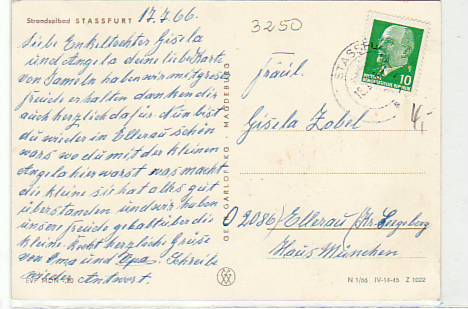 Strandsolbad STASSFURT 17.7.66.
3250
Liebe Enkeltochter Gisela
und Angela deine liebe Karte
von Hameln haben wir mit großer
Freude erhalten danken dir
auch herzlich dafür. Nun bist
du wieder in Ellerau schön
wars wo du mit der kleinen
Angela hier warst was macht
die kleine sie hat alles gut
überstanden und wir haben
unsere Freude gehabt über die
kleine. Recht herzliche Grüße
von Oma und Opa. Schreibe
wieder Antwort.
GEBR. GARLOFF KG · MAGDEBURG
STASSFU
10
4,-
Fräul.
Gisela Zobel
2086 Ellerau Kr. Segeberg
Haus München
N 1/66 IV-14-45 Z 1022